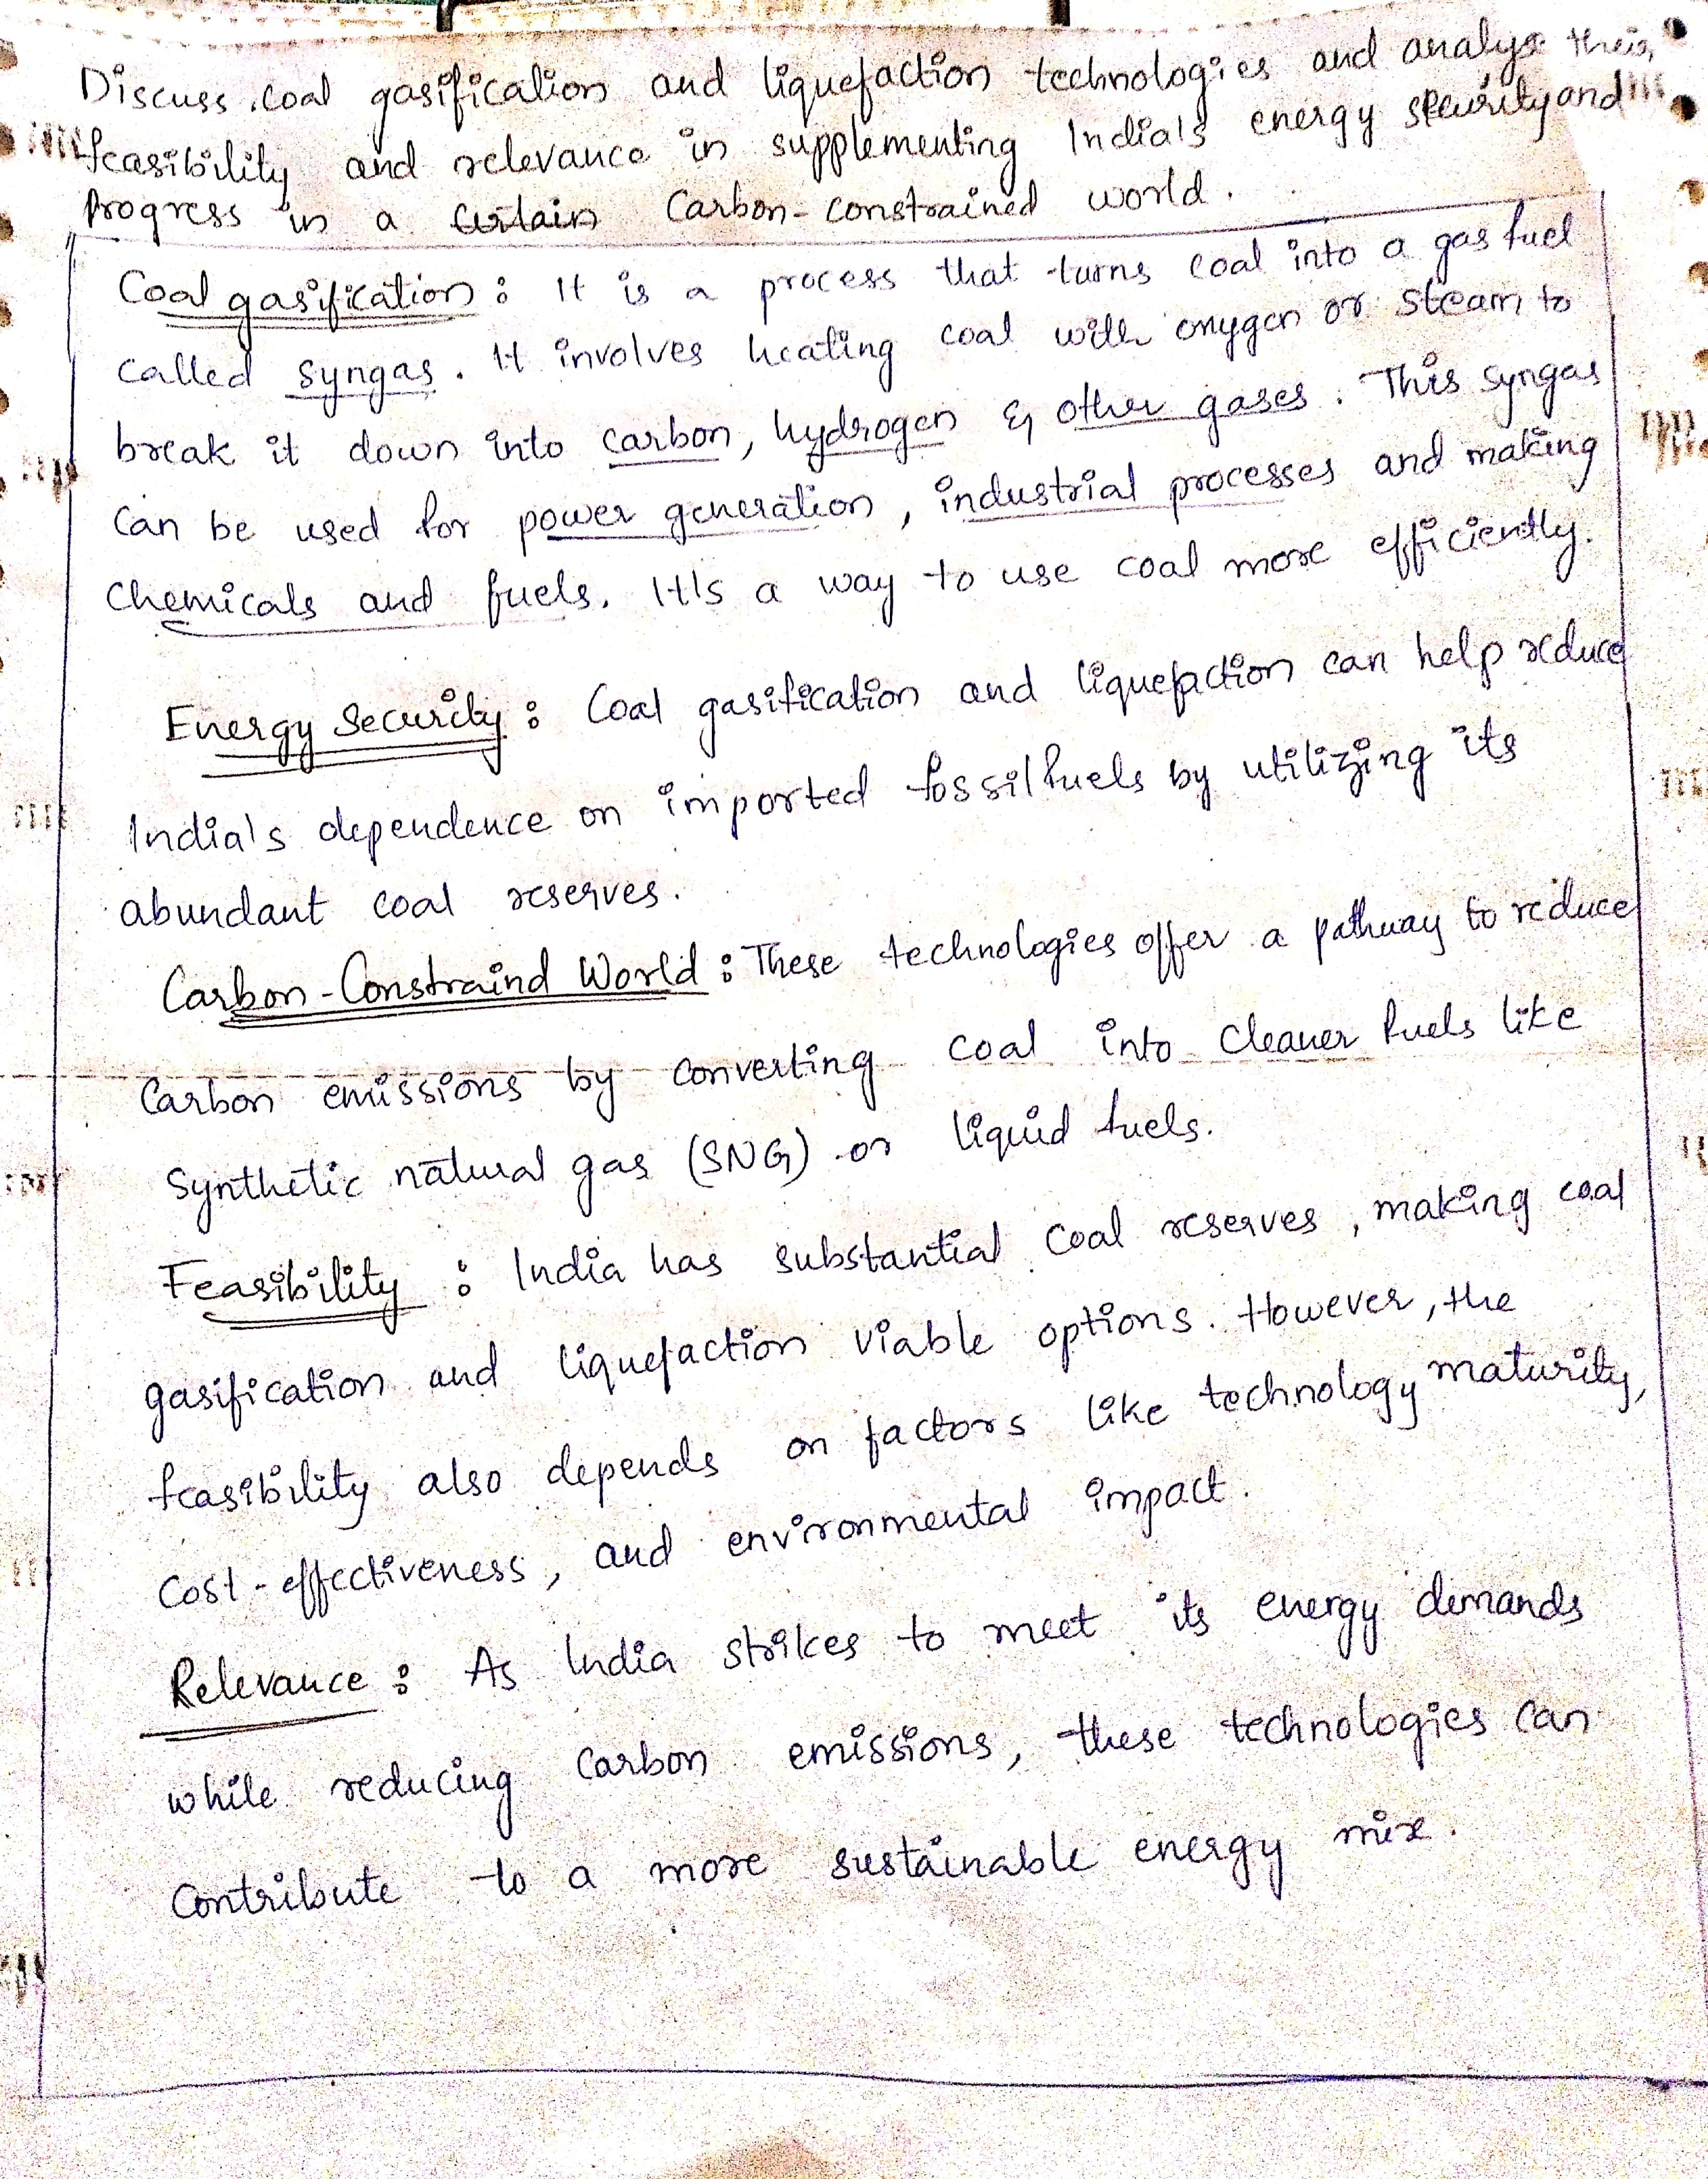 Discuss coal gasification and liquefaction technologies and analyse their
feasibility and relevance in supplementing India's energy security and
Progress in a certain Carbon-constrained world.
Coal gasification: It is a process that turns coal into a gas fuel
called syngas. It involves heating coal with oxygen or steam to
break it down into carbon, hydrogen & other gases. This syngas
can be used for power generation, industrial processes and making
chemicals and fuels. It's a way to use coal more efficiently.
Energy Security: Coal gasification and liquefaction can help reduce
India's dependence on imported fossil fuels by utilizing its
abundant coal reserves.
Carbon-Constraind World: These technologies offer a pathway to reduce
Carbon emissions by converting coal into cleaner fuels like
Synthetic natural gas (SNG) or liquid fuels.
Feasibility: India has substantial coal reserves, making coal
gasification and liquefaction viable options. However, the
feasibility also depends on factors like technology maturity,
Cost-effectiveness, and environmental impact.
Relevance: As India strikes to meet its energy demands
while reducing carbon emissions, these technologies can
Contribute to a more sustainable energy mix.